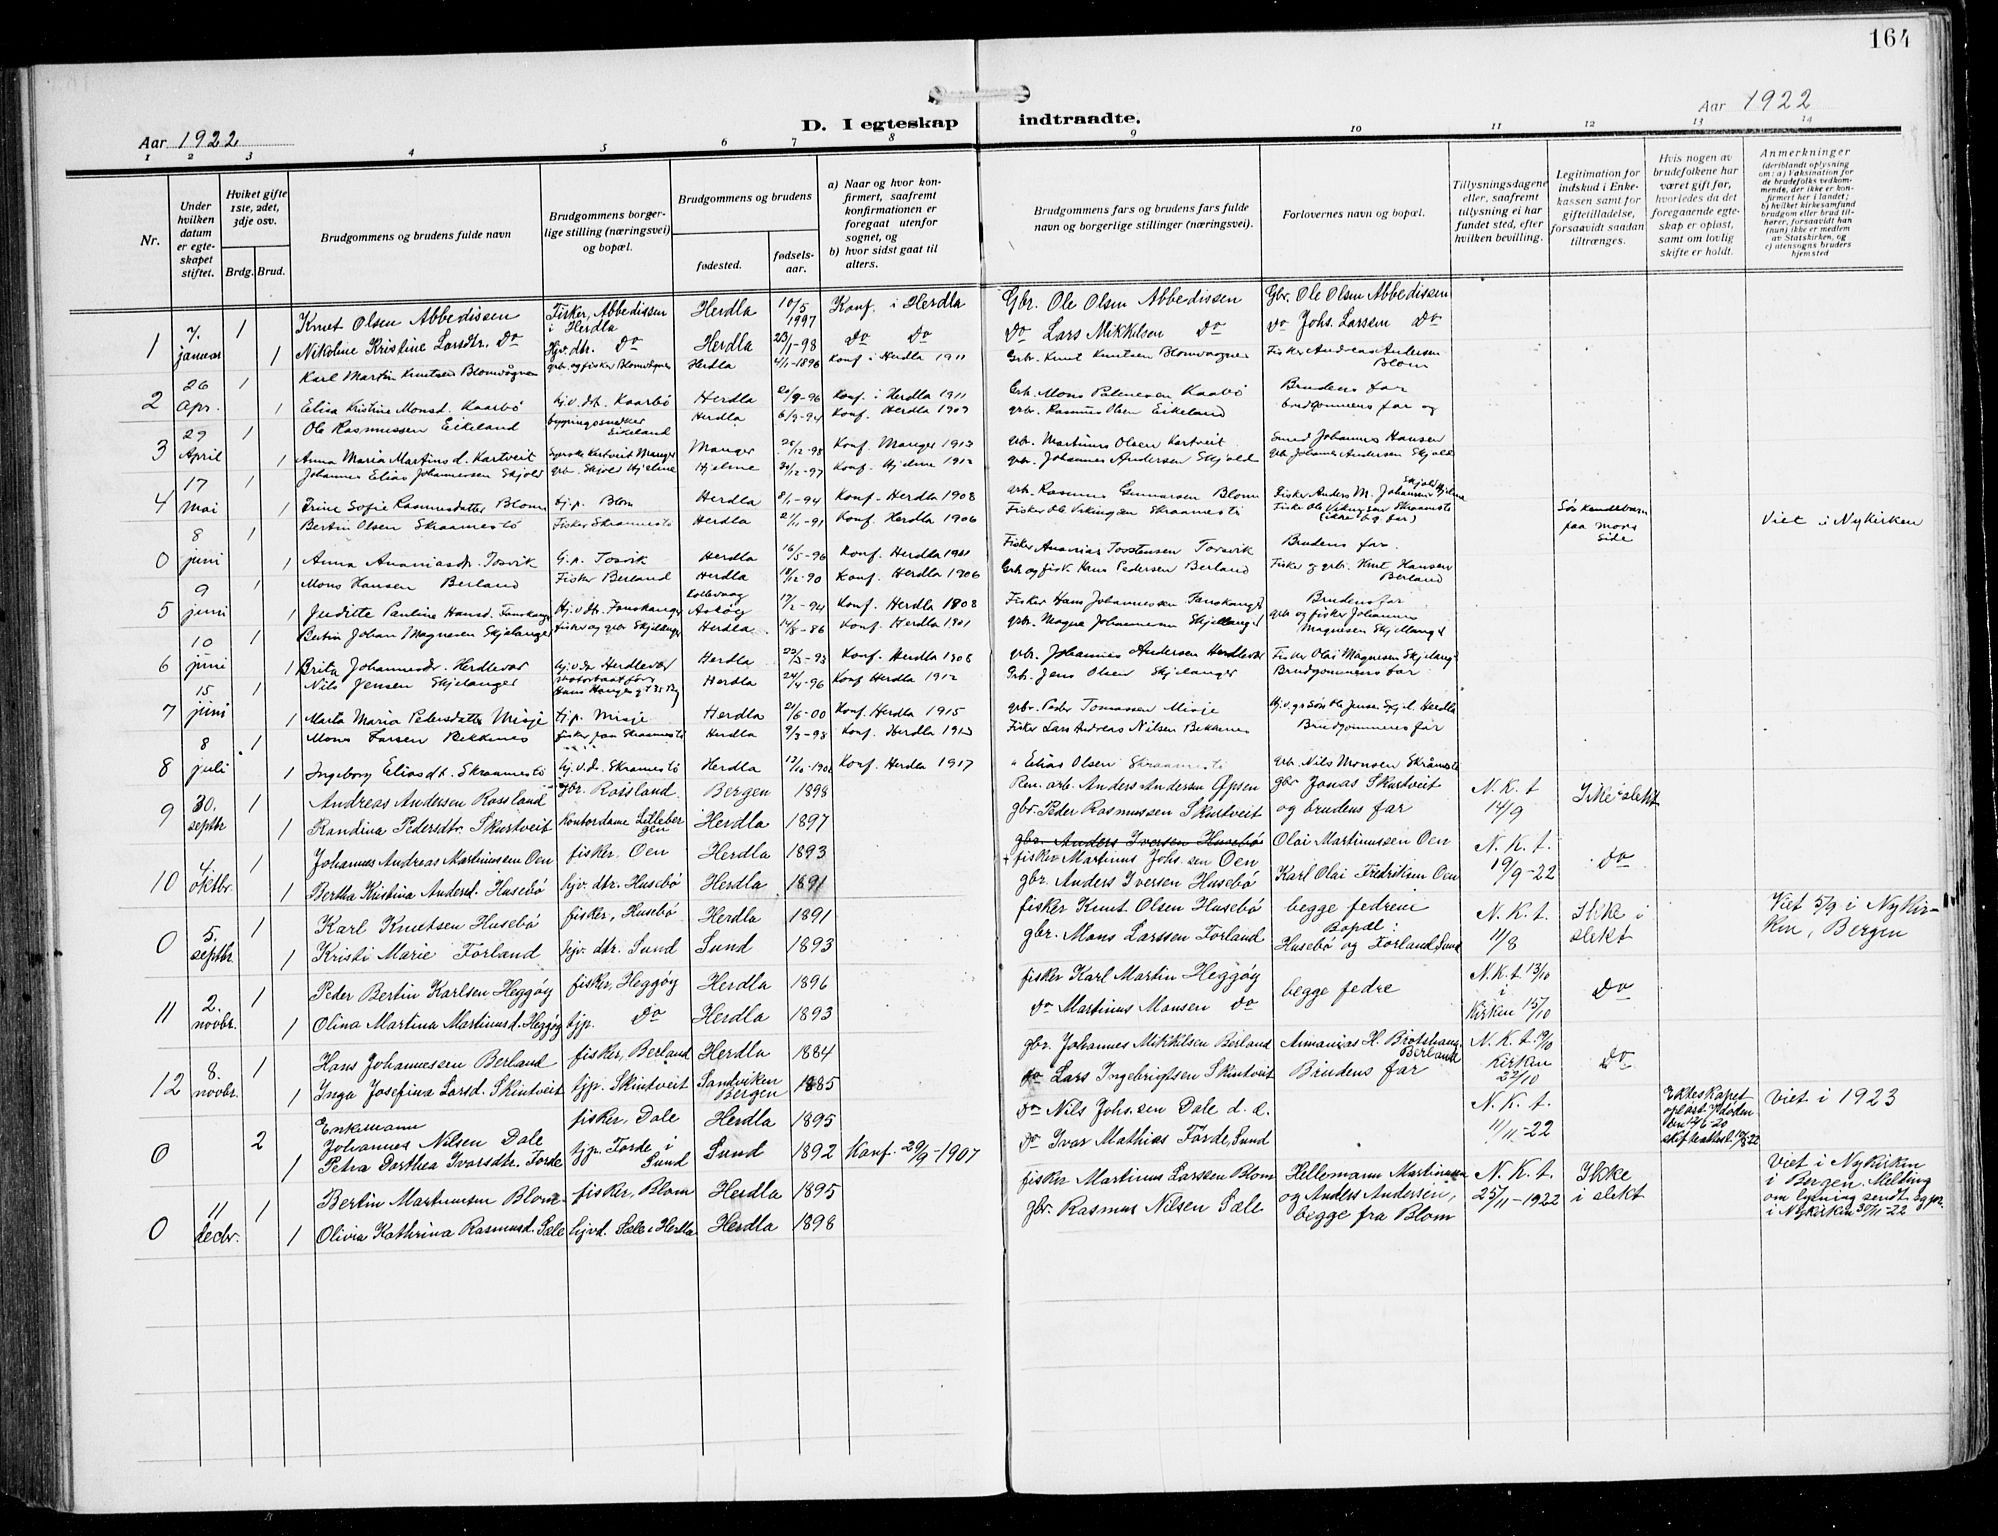 164
Aar 1922
D. I egteskap indtraadte.
Aar 1922
1 2 3 4 5 6 7 8 9 10 11 12 13 14
Nr.
Under hvilken datum er egteskapet stiftet.
Hviket gifte 1ste, 2det, 3dje osv.
Brdg. Brud.
Brudgommens og brudens fulde navn
Brudgommens borgerlige stilling (næringsvei) og bopæl.
Brudgommens og brudens
fødested.
fødselsaar.
a) Naar og hvor konfirmert, saafremt konfirmationen er foregaat utenfor sognet, og
b) hvor sidst gaat til alters.
Brudgommens fars og brudens fars fulde navn og borgerlige stillinger (næringsvei).
Forlovernes navn og bopæl.
Tillysningsdagene eller, saafremt tillysning ei har fundet sted, efter hvilken bevilling.
Legitimation for indskud i Enkekassen samt for giftetilladelse, forsaavidt saadan tiltrænges.
Hvis nogen av brudefolkene har været gift før, hvorledes da det foregaaende egteskap er opløst, samt om lovlig skifte er holdt.
Anmerkninger (deriblandt oplysning om: a) Vaksination for de brudefolks vedkommende, der ikke er konfirmert her i landet; b) hvilket kirkesamfund brudgom eller brud tilhører, forsaavidt han (hun) ikke er medlem av Statskirken, og c) utensogns bruders hjemsted
1 7. januar 1 Knut Olsen Abbedissen Fisker, Abbedissen i Herdla Herdla 10/5 1997 Konf. i Herdla Gbr. Ole Olsen Abbedissen Gbr. Ole Olsen Abbedissen
1 Nikoline Kristine Larsdtr. Do Hjv. dtr. Do Herdla 23/1-98 Do Do Do Lars Mikkelsen Do Do Johs. Larssen Do
2 26 Apr. 1 Karl Martin Knutsen Blomvågnes gbr. og fisker Blomvågnes Herdla 4/1-1896 Konf. i Herdla 1911 Gbr. Knut Knutsen Blomvågnes Fisker Andreas Andersen Blom
1 Elisa Kristine Monsd. Kaarbö hj.v. dt. Kaarbö Herdla 20/9-96 Konf. i Herdla 1911 Gbr. Mons Kaarbö Brudens far
3 29 April 1 Ole Rasmussen Eikeland bygningssnekker Eikeland Herdla 6/9-94 Konf. Herdla 1909 gbr. Rasmus Olsen Eikeland brudgommens far og
1 Anna Maria Martinsd. Kartveit Kartveit Manger Manger 20/12-98 Konf. Manger 1913 gbr. Martinus Olsen Kartveit Smed Johannes Hansen
4 17 Mai 1 Johannes Elias Johannessen Skjold gbr. Skjold Hjelme Hjelme 20/12-97 Konf. Hjelme 1912 gbr. Johannes Andersen Skjold gbr. Johannes Andersen Skjold
1 Trine Sofie Rasmusdatter Blom tj.p. Blom Herdla 8/1-94 Konf. Herdla 1908 gbr. Rasmus Gunnarsen Blom Fisker Anders M. Johansen Skjold Hjelme
0 8 juni 1 Bertin Olsen Skraamestö Fisker Skraamestö Herdla 21/11-91 Konf. Herdla 1906 Fisker Ole Vikingsen Skraamestö Fisker Ole Vikingsen Skraamestö (ikke b.g. far) Söskendebarn paa mors side Viet i Nykirken
1 Anna Ananiasdr. Torsvik G.p. Torsvik Herdla 16/5-96 Konf. Herdla 1911 Fisker Ananias Torstensen Torsvik Brudens far.
5 9 juni 1 Mons Hansen Berland Fisker Berland Herdla 18/12-90 Konf. Herdla 1906 Gbr. og fisk. Hans Pedersen Berland Fisker og gbr. Knut Hansen Berland
1 Judite Pauline Hansd. Fonskanger Hj.v. dtr. Fonskanger Kollevaag Askøy 17/2-94 Konf. Herdla 1908 Fisker Hans Johannessen Brudens far
6 10 juni 1 Bertin Johan Magnesen Skjelanger fisker og gbr Skjelanger Herdla 14/8-86 Konf. Herdla 1901 gbr. Magne Johannessen Skjellanger gbr og fisker Johannes Magnesen Skjellanger
1 Brita Johannesdr. Herdlevær hj.v. dr Herdlevær Herdla 22/3-93 Konf. Herdla 1908 gbr. Johannes Andersen Herdlevær Fisker Olai Magnesen Skjelanger
7 15 juni 1 Nils Jensen Skjelanger Herdla 24/4-96 Konf. Herdla 1912 Gbr. Jens Olsen Skjelanger Brudgommens far
1 Marta Maria Petersdatter Misje tj.p. Misje Herdla 21/6-00 Konf. Herdla 1915 gbr. Peder Tomassen Misje
8 8 juli 1 Mons Larsen Bekkenes fisker paa Skraamestö Herdla 9/3-98 Konf. Herdla 1913 Fisker Lars Andreas Nilsen Bekkenes Brudgommens far
1 Ingeborg Eliasdt. Skraamestö hj.v.dr. Skramestö Herdla 12/10-1902 Konf. Herdla 1917 " Elias Olsen Skraamestö gbr. Nils Monsen Skråmestö
9 30. septbr 1 Andreas Andersen Rossland gbr. Rossland Bergen 1898 Ren. arb. Anders Andersen gbr Jonas Skurtveit N.K.t 14/9 Ikke i slekt
1 Randina Pedersdtr. Skurtveit Kontordame Lillebergen Herdla 1897 gbr. Peder Rasmussen Skurtveit og brudens far
10 4 oktbr. 1 Johannes Andreas Martinussen Oen fisker, Oen Herdla 1893 gbr. Anders Iversen Husebö + fisker Martinus Johs.sen Oen Olai Martinussen Oen N.K.t. 19/9-22 Do
1 Bertha Kristina Andersd. Husebö hjv. dtr. Husebö Herdla 1891 gbr. Anders Iversen Husebö Karl Olai Fredriksen Oen
0 5. septbr 1 Karl Knutsen Husebö fisker, Husebö Herdla 1891 fisker Knut Olsen Husebö begge fedrene N.K.t. 11/8 Ikke i slekt Viet 5/9 i Nykirken, Bergen
1 Kristi Marie Forland hjv. dtr. Sund Sund 1893 gbr. Mons Larssen Forland Bopel: Husebö og Forland, Sund
11 2. novbr. 1 Peder Bertin Karlsen Heggöy fisker, Heggöy Herdla 1896 fisker Karl Martin Heggöy begge fedre N.K.t 13/10 i Kirken 15/10 Do
1 Olina Martina Martinusd. Heggöy tjp. Do Herdla 1893 Do Martinus Monsen Do
12 8. novbr. 1 Hans Johannessen Berland fisker, Berland Herdla 1884 gbr. Johannes Mikkelsen Berland Annanias H. Berland N.K.t 19/10 Kirken 22/10 Do
1 Inga Josefina Larsd. Skintveit tjp. Skintveit Sandviken Bergen 1885 Do Lars Ingebrigtsen Skintveit Brudens far
0 2 Enkemann Johannes Nilsen Dale fisker, Dale Herdla 1895 Do Nils Johs.sen Dale d.e. N.K.t. 11/11-22 Ekteskapet oplöst v/döden den 14/6-20 skifteattest 19/8-22 Viet i 1923
1 Petra Dorthea Ivarsdtr. Forde tjp. Forde i Sund Sund 1892 Konf. 29/9-1907 Do Ivar Mathias Förde, Sund
0 11 decbr. 1 Bertin Martinussen Blom fisker, Blom Herdla 1895 fisker Martinus Larssen Blom Hellemann Martinussen og Anders Andersen, begge fra Blom N.K.t. 25/11-1922 Ikke i slekt Viet i Nykirken i Bergen. Melding om lysning sendt sgpr. i Nykirken 30/11-22
1 Olivia Kathrina Rasmusd. Sæle hjvd. Sæle i Herdla Herdla 1898 gbr. Rasmus Nilsen Sæle